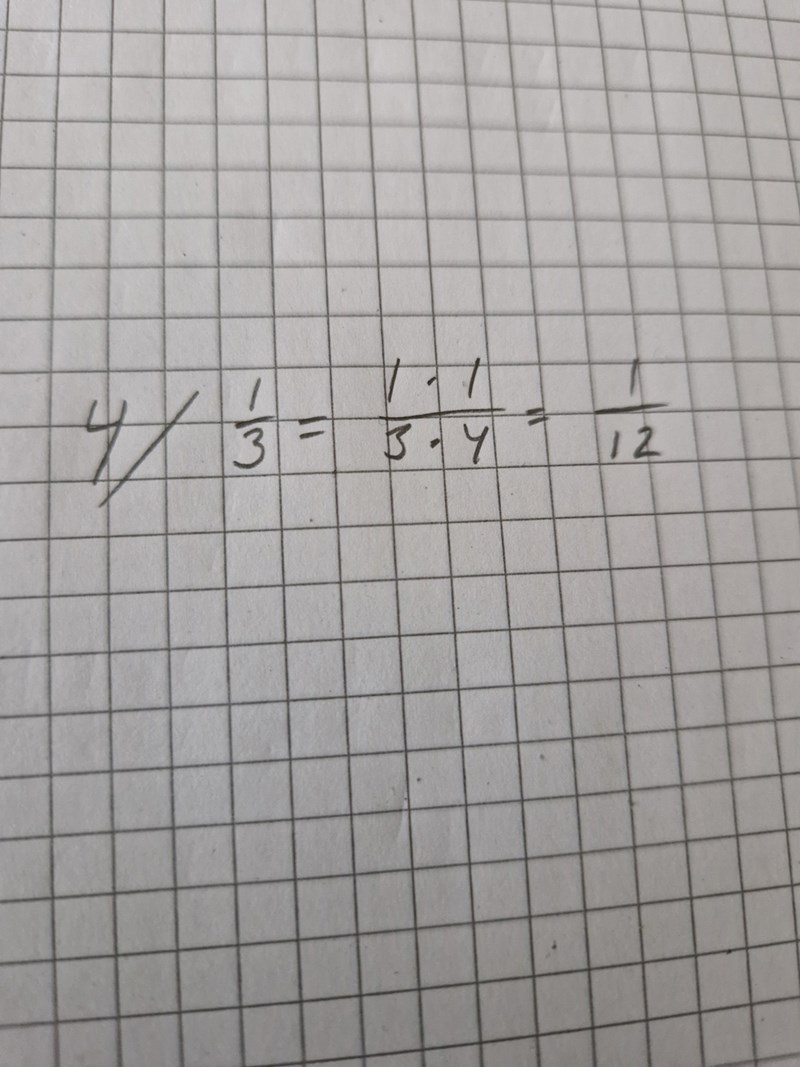 4/ 1/3 = 1·1/3·4 = 1/12